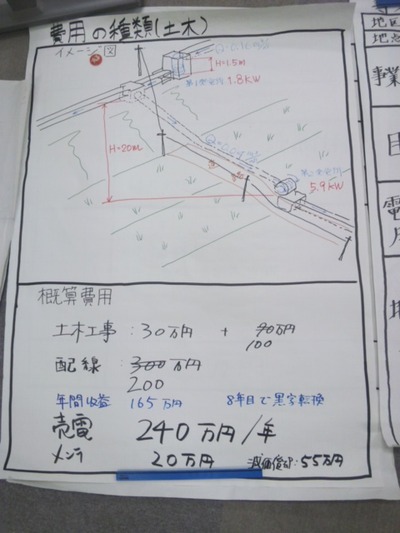 費用の種類(土木)
イメージ図
H=1.5m
第1発電所 1.8KW
H=20m
5.9KW
概算費用
土木工事:30万円 + 90万円
100
配線:300万円
200
年間収益 165万円 8年目で黒字転換
売電 240万円/年
メンテ 20万円 減価償却:55万円
地
地
事業
目
電